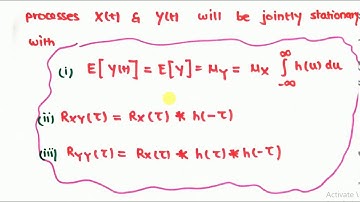 processes X(t) & Y(t) will be jointly stationary
with
(i) E[Y(t)] = E[Y] = μY = μX ∫_{-∞}^{∞} h(u) du
(ii) RXY(τ) = RX(τ) * h(-τ)
(iii) RYY(τ) = RX(τ) * h(τ) * h(-τ)